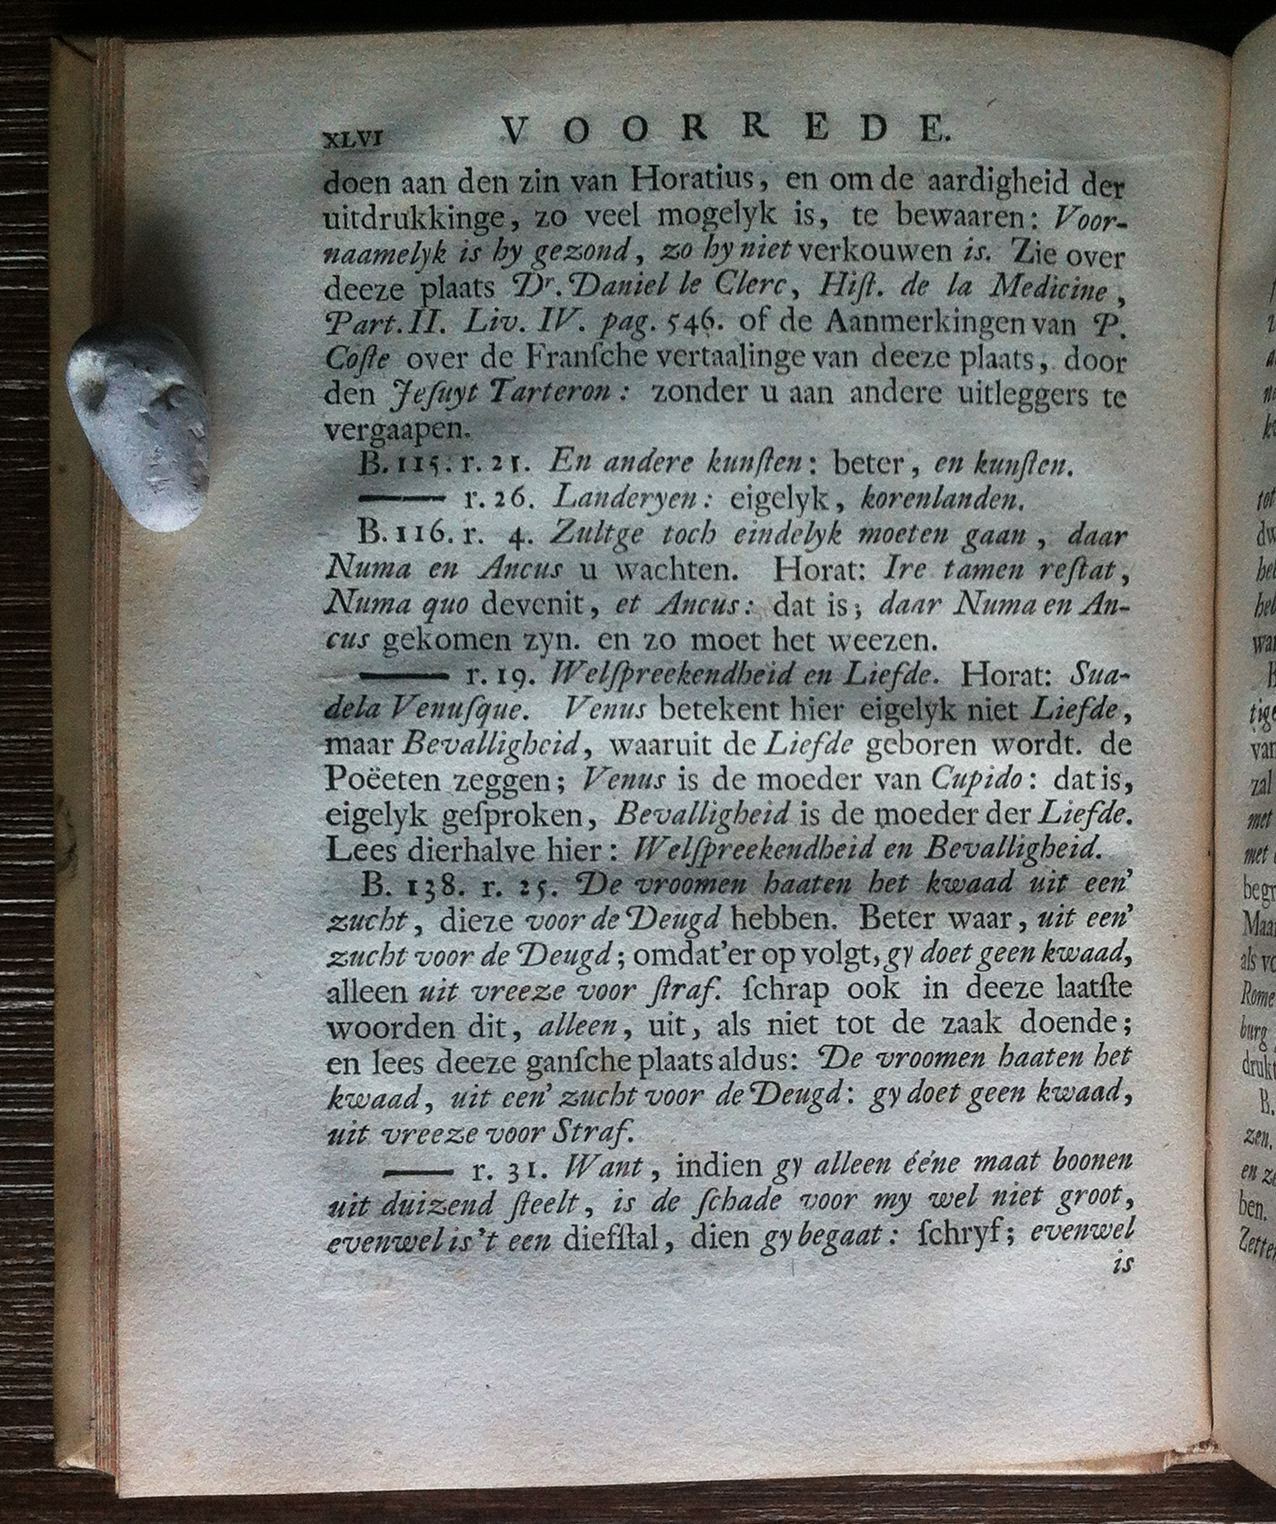 XLVI VOORREDE.
doen aan den zin van Horatius, en om de aardigheid der
uitdrukkinge, zo veel mogelyk is, te bewaaren: Voor-
naamelyk is hy gezond, zo hy niet verkouwen is. Zie over
deeze plaats Dr. Daniel le Clerc, Hiſt. de la Medicine,
Part. II. Liv. IV. pag. 546. of de Aanmerkingen van P.
Coſte over de Franſche vertaalinge van deeze plaats, door
den Jeſuyt Tarteron: zonder u aan andere uitleggers te
vergaapen.
B. 115. r. 21. En andere kunſten: beter, en kunſten.
—— r. 26. Landeryen: eigelyk, korenlanden.
B. 116. r. 4. Zultge toch eindelyk moeten gaan, daar
Numa en Ancus u wachten. Horat: Ire tamen reſtat,
Numa quo devenit, et Ancus: dat is; daar Numa en An-
cus gekomen zyn. en zo moet het weezen.
—— r. 19. Welſpreekendheid en Liefde. Horat: Sua-
dela Venuſque. Venus betekent hier eigelyk niet Liefde,
maar Bevalligheid, waaruit de Liefde geboren wordt. de
Poëeten zeggen; Venus is de moeder van Cupido: dat is,
eigelyk geſproken, Bevalligheid is de moeder der Liefde.
Lees dierhalve hier: Welſpreekendheid en Bevalligheid.
B. 138. r. 25. De vroomen haaten het kwaad uit een'
zucht, dieze voor de Deugd hebben. Beter waar, uit een'
zucht voor de Deugd; omdat'er op volgt, gy doet geen kwaad,
alleen uit vreeze voor ſtraf. ſchrap ook in deeze laatſte
woorden dit, alleen, uit, als niet tot de zaak doende;
en lees deeze ganſche plaats aldus: De vroomen haaten het
kwaad, uit een' zucht voor de Deugd: gy doet geen kwaad,
uit vreeze voor Straf.
—— r. 31. Want, indien gy alleen ééne maat boonen
uit duizend ſteelt, is de ſchade voor my wel niet groot,
evenwel is't een diefſtal, dien gy begaat: ſchryf; evenwel
is